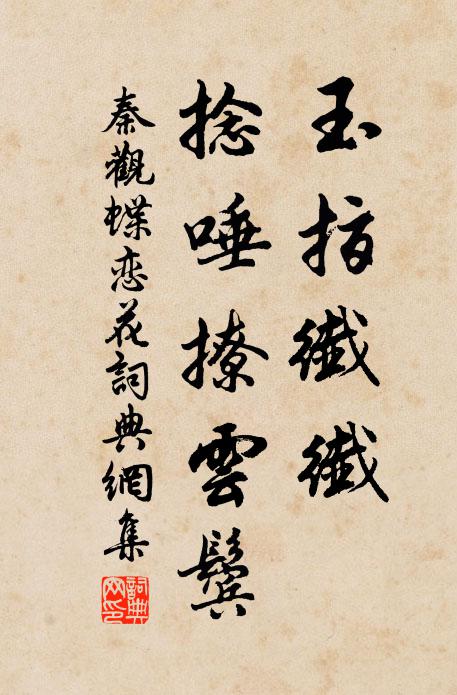 玉指纖纖
捻唾撩雲鬢
秦觀蝶恋花詞典網集
詞典網印